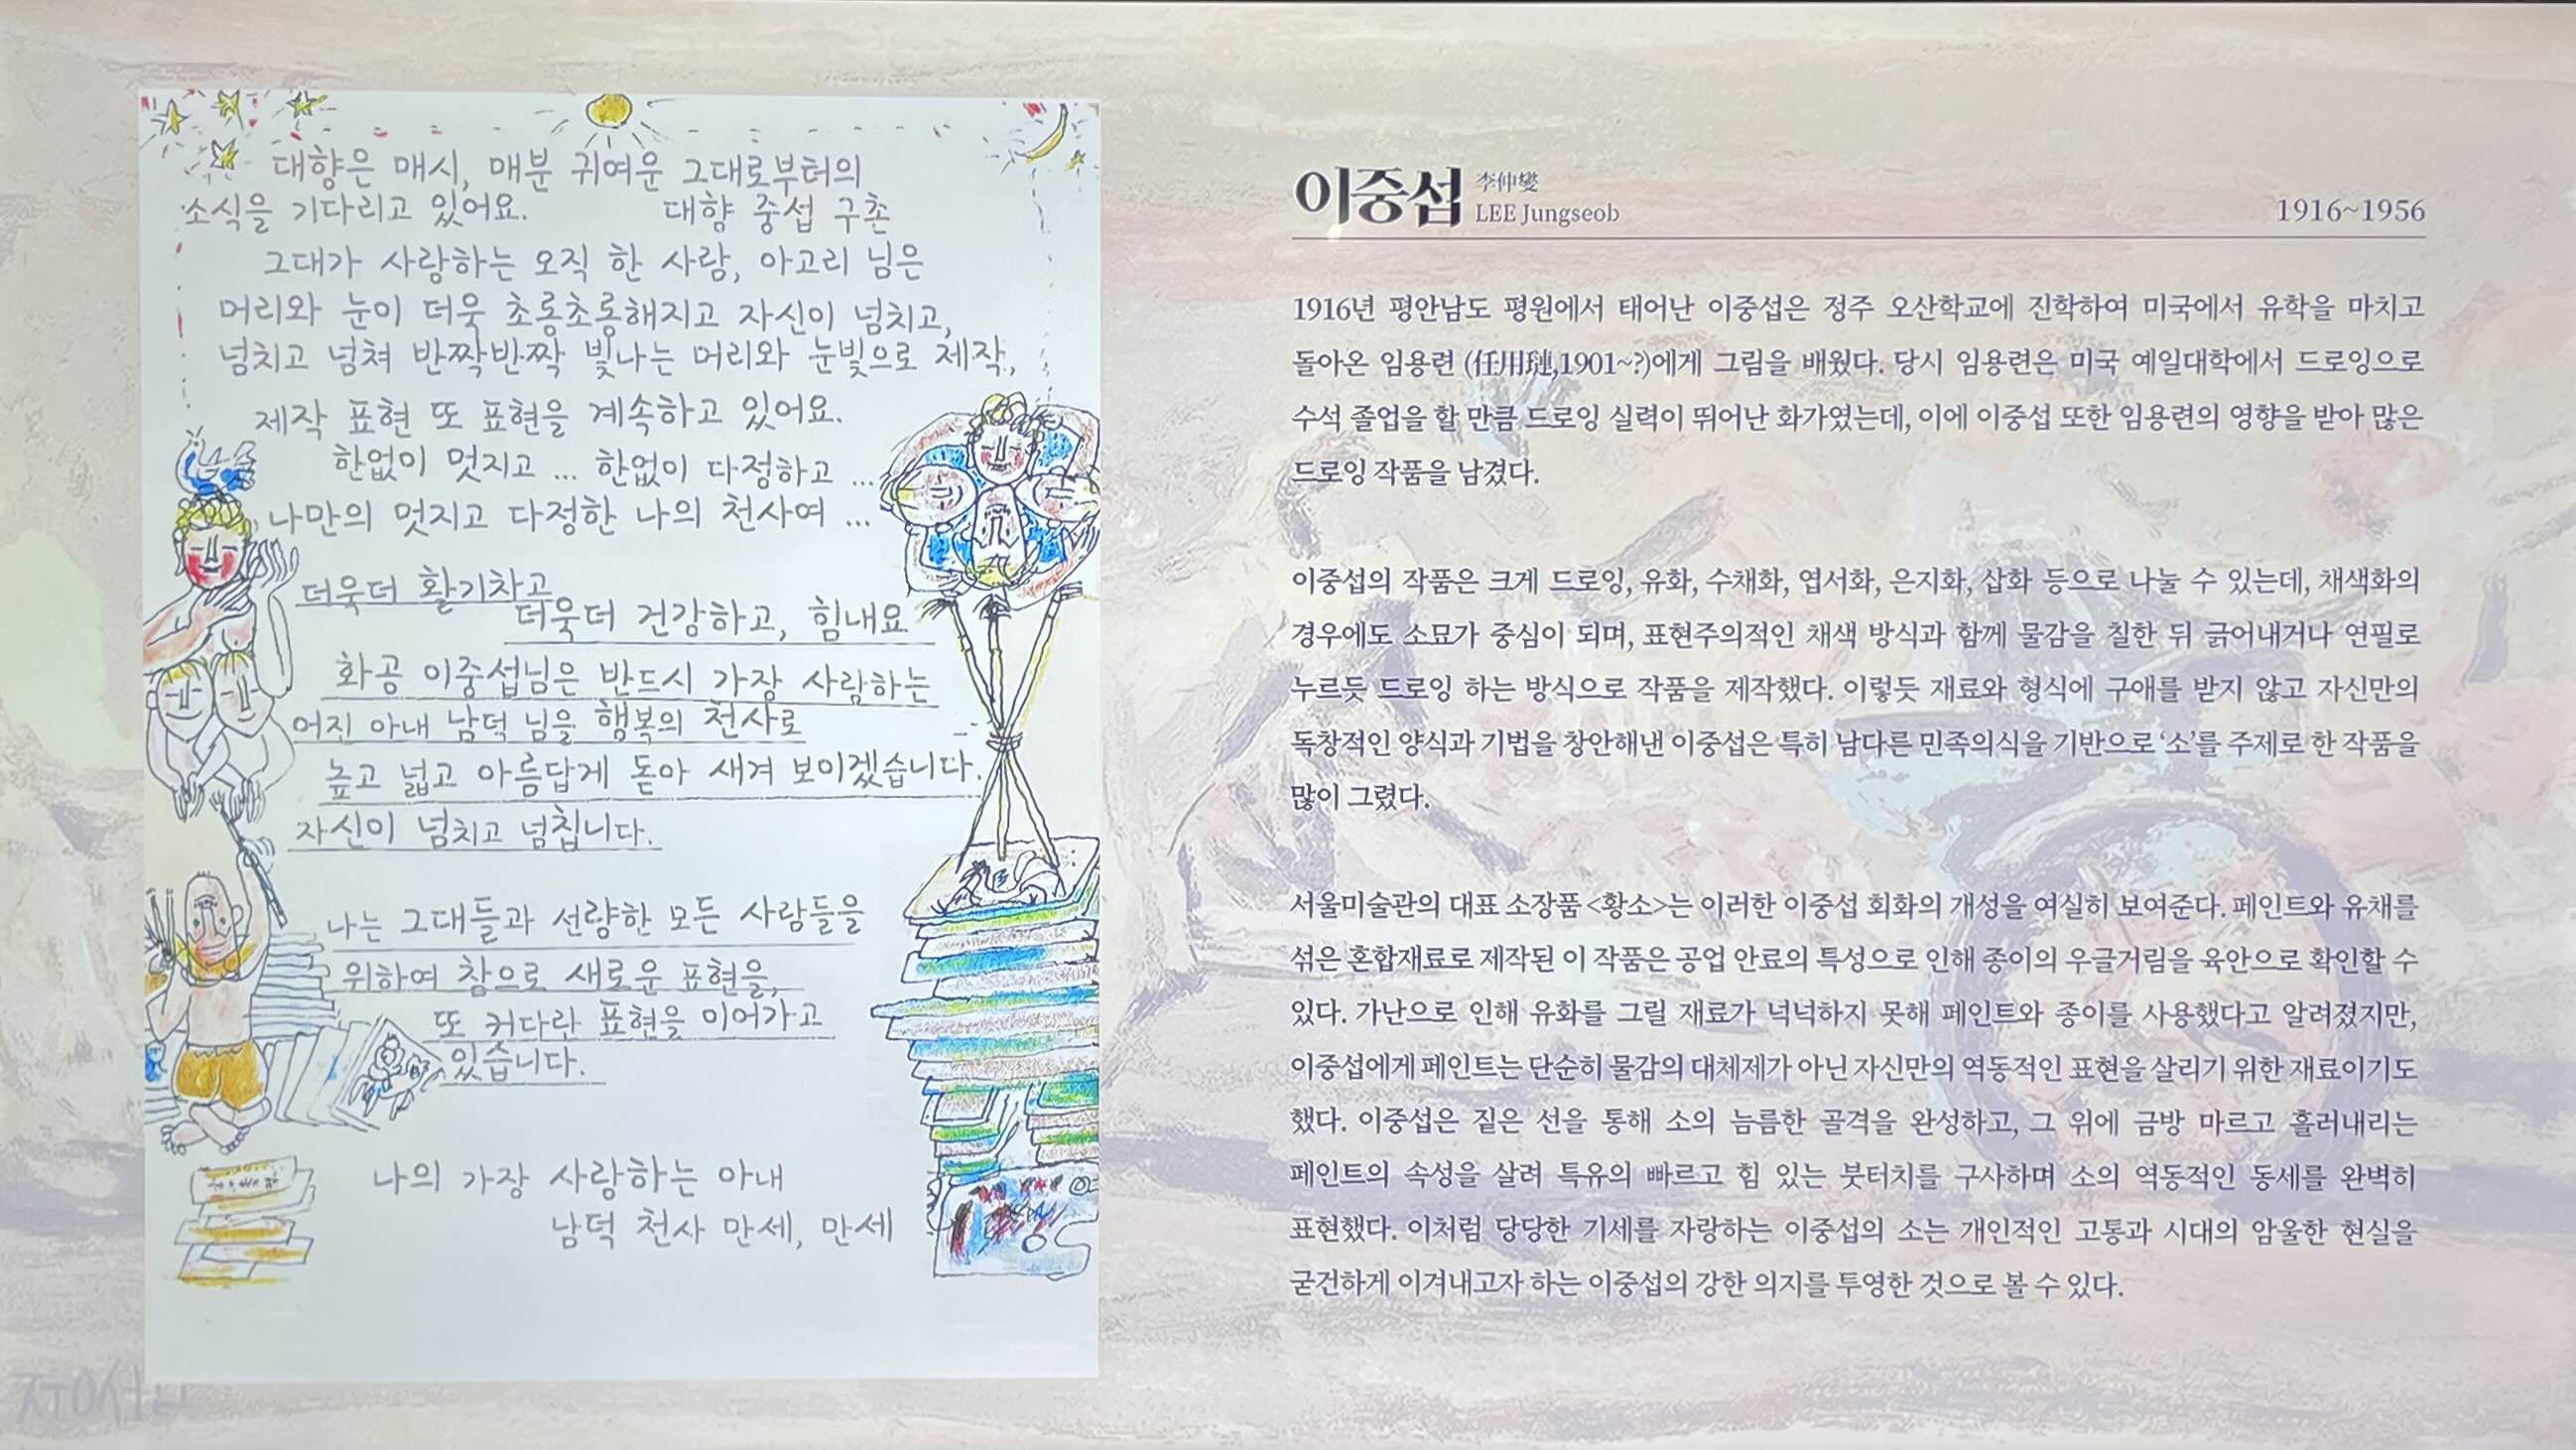 대향은 매시, 매분 귀여운 그대로부터의
소식을 기다리고 있어요. 대향 중섭 구촌
그대가 사랑하는 오직 한 사람, 아고리 님은
머리와 눈이 더욱 초롱초롱해지고 자신이 넘치고,
넘치고 넘쳐 반짝반짝 빛나는 머리와 눈빛으로 제작,
제작 표현 또 표현을 계속하고 있어요.
한없이 멋지고 ... 한없이 다정하고 ...
나만의 멋지고 다정한 나의 천사여 ...
더욱더 활기차고
더욱더 건강하고, 힘내요
화공 이중섭님은 반드시 가장 사랑하는
어진 아내 남덕 님을 행복의 천사로
높고 넓고 아름답게 돋아 새겨 보이겠습니다.
자신이 넘치고 넘칩니다.
나는 그대들과 선량한 모든 사람들을
위하여 참으로 새로운 표현을,
또 커다란 표현을 이어가고
있습니다.
나의 가장 사랑하는 아내
남덕 천사 만세, 만세
이중섭 李仲燮
LEE Jungseob
1916~1956
1916년 평안남도 평원에서 태어난 이중섭은 정주 오산학교에 진학하여 미국에서 유학을 마치고
돌아온 임용련 (任用璉,1901~?)에게 그림을 배웠다. 당시 임용련은 미국 예일대학에서 드로잉으로
수석 졸업을 할 만큼 드로잉 실력이 뛰어난 화가였는데, 이에 이중섭 또한 임용련의 영향을 받아 많은
드로잉 작품을 남겼다.
이중섭의 작품은 크게 드로잉, 유화, 수채화, 엽서화, 은지화, 삽화 등으로 나눌 수 있는데, 채색화의
경우에도 소묘가 중심이 되며, 표현주의적인 채색 방식과 함께 물감을 칠한 뒤 긁어내거나 연필로
누르듯 드로잉 하는 방식으로 작품을 제작했다. 이렇듯 재료와 형식에 구애를 받지 않고 자신만의
독창적인 양식과 기법을 창안해낸 이중섭은 특히 남다른 민족의식을 기반으로 ‘소’를 주제로 한 작품을
많이 그렸다.
서울미술관의 대표 소장품 <황소>는 이러한 이중섭 회화의 개성을 여실히 보여준다. 페인트와 유채를
섞은 혼합재료로 제작된 이 작품은 공업 안료의 특성으로 인해 종이의 우글거림을 육안으로 확인할 수
있다. 가난으로 인해 유화를 그릴 재료가 넉넉하지 못해 페인트와 종이를 사용했다고 알려졌지만,
이중섭에게 페인트는 단순히 물감의 대체제가 아닌 자신만의 역동적인 표현을 살리기 위한 재료이기도
했다. 이중섭은 짙은 선을 통해 소의 늠름한 골격을 완성하고, 그 위에 금방 마르고 흘러내리는
페인트의 속성을 살려 특유의 빠르고 힘 있는 붓터치를 구사하며 소의 역동적인 동세를 완벽히
표현했다. 이처럼 당당한 기세를 자랑하는 이중섭의 소는 개인적인 고통과 시대의 암울한 현실을
굳건하게 이겨내고자 하는 이중섭의 강한 의지를 투영한 것으로 볼 수 있다.